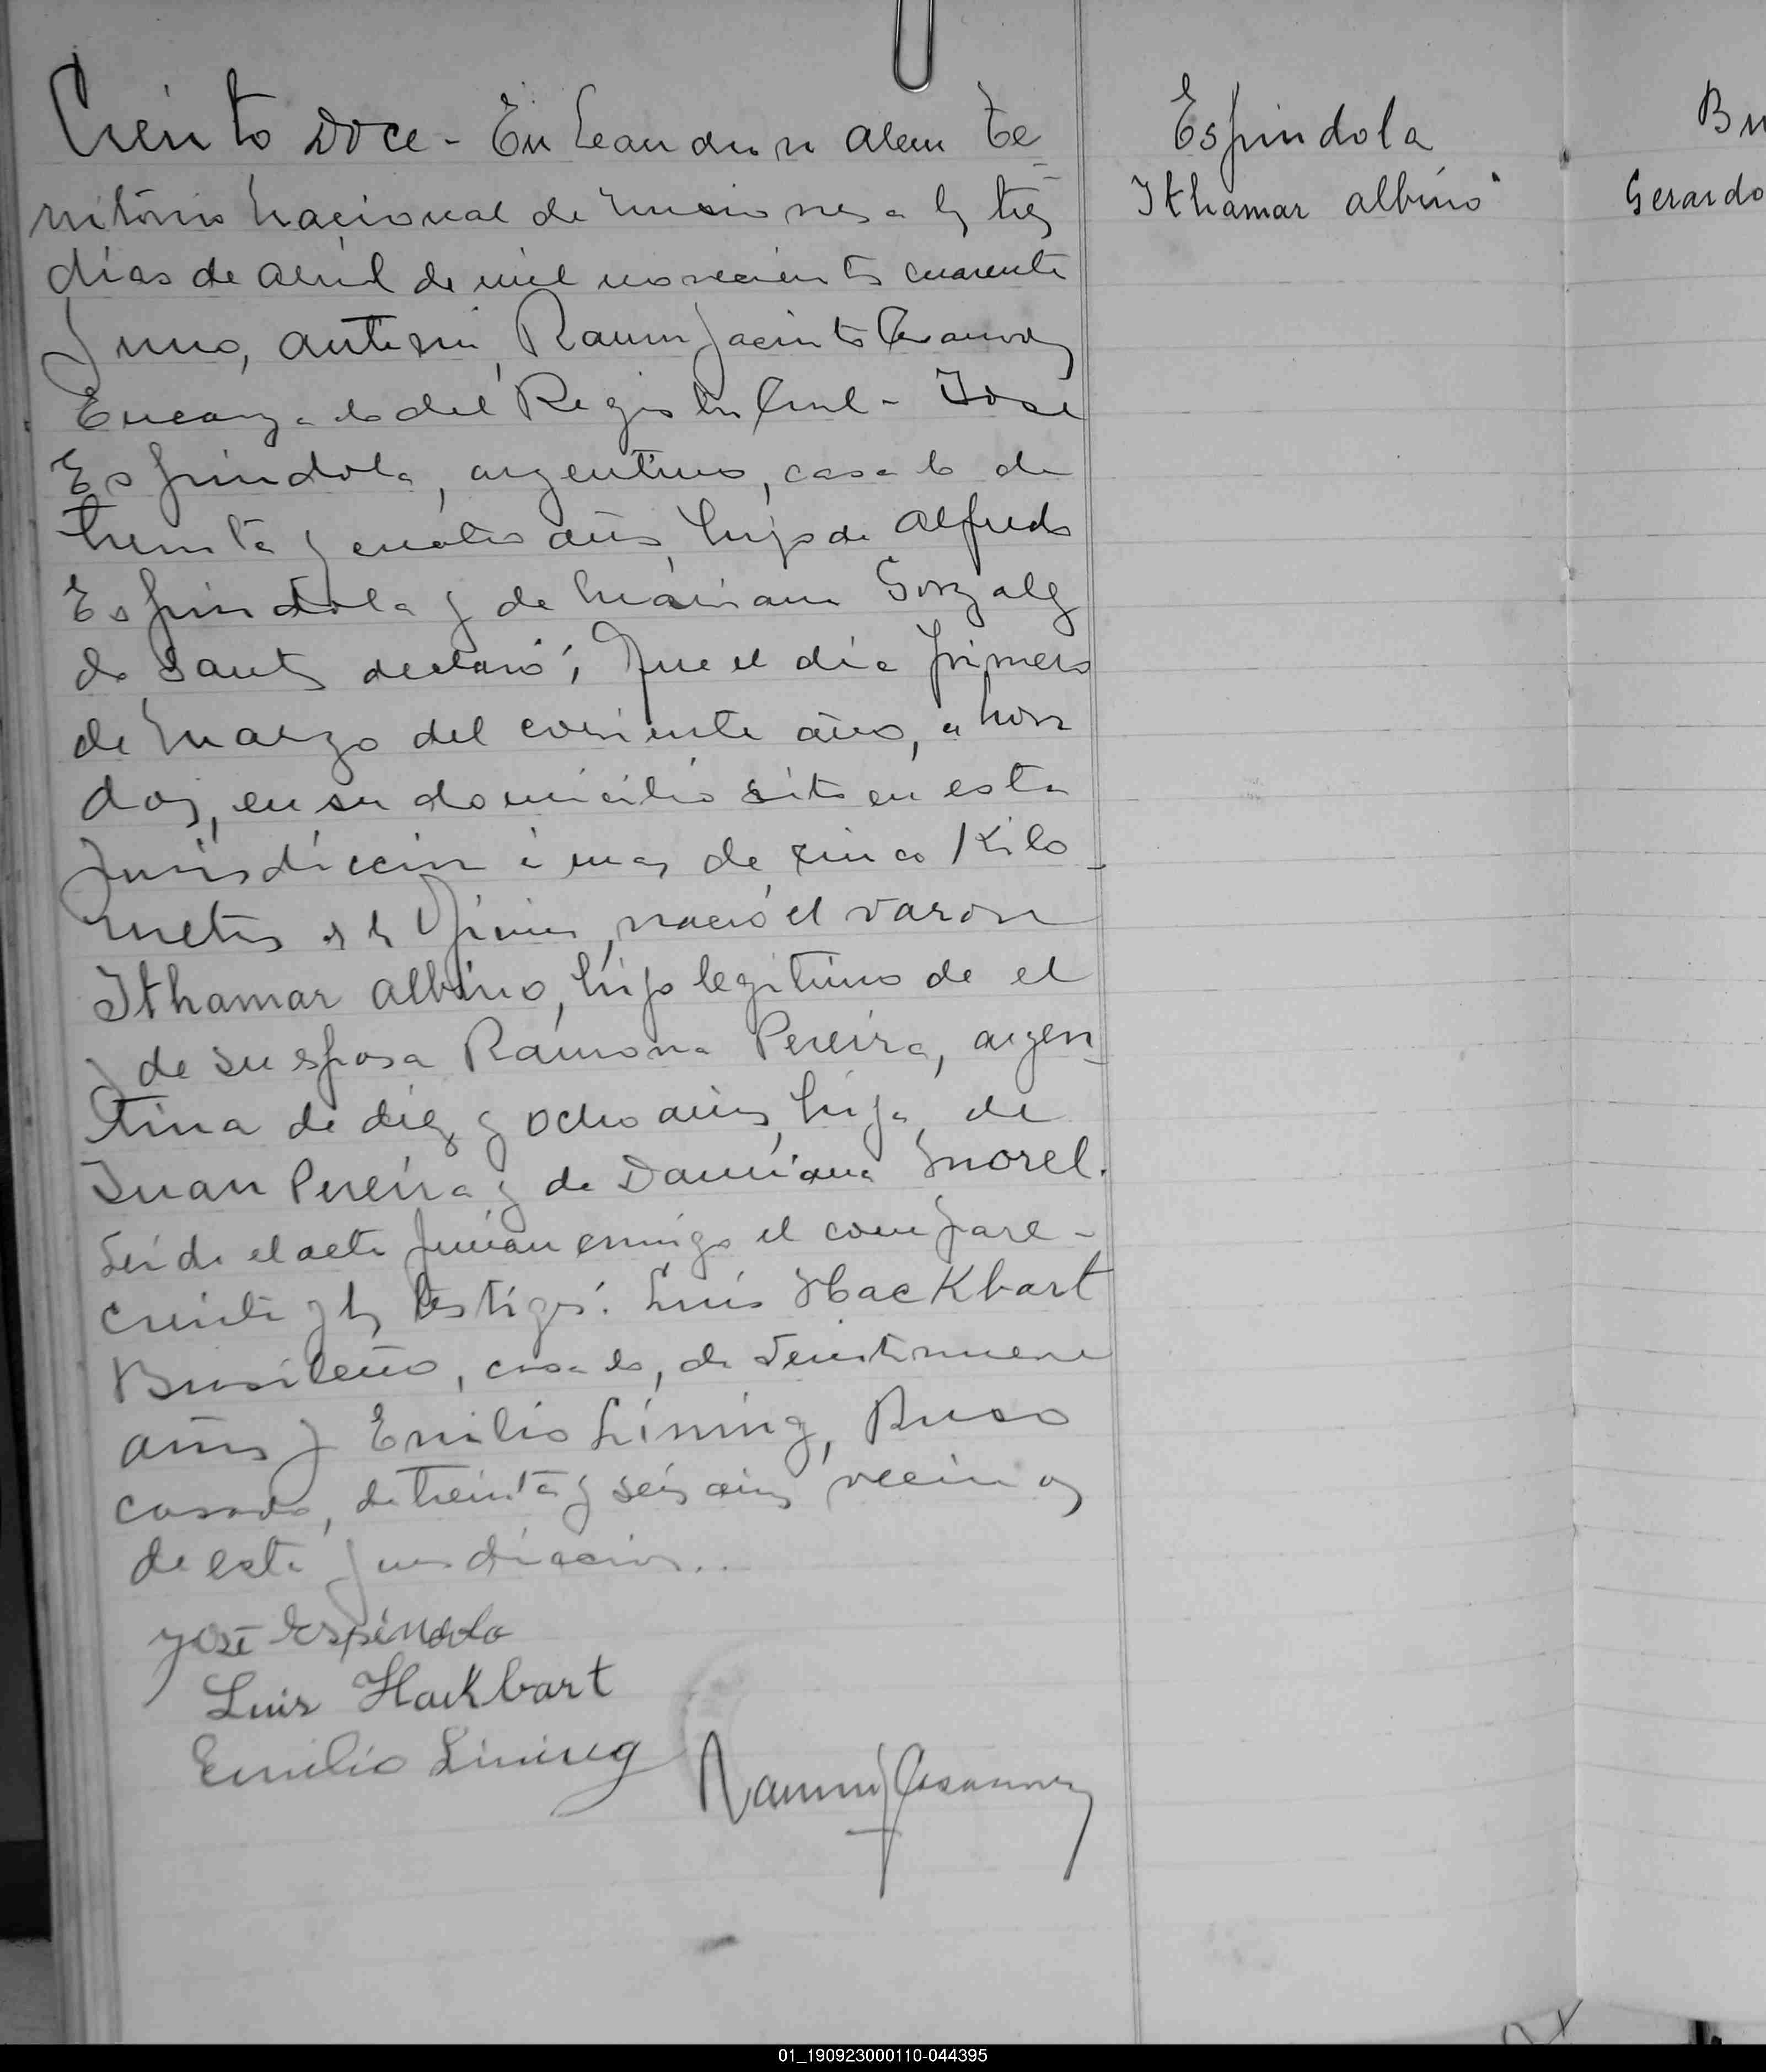 Ciento Doce - En Leandro N Alem Te-
rritorio Nacional de Misiones a los tres
días de Abril de mil novecientos cuarenta
y uno, ante mi, Ramon Jacinto
Encargado del Registro Civil - José
Espindola, argentino, casado de
treinta y cuatro años, hijo de Alfredo
Espindola y de Mariana Gonzalez
do Santos declaró; Que el día primero
de Marzo del corriente año, a hora
dos, en su domicilio sito en esta
Jurisdiccion a mas de cinco Kilo-
metros de la Oficina, nació el varon
Ithamar Albino, hijo legitimo de el
y de su esposa Ramona Pereira, argen-
tina de diez y ocho años, hija de
Juan Pereira y de Damiana Morel.
Leida el acta firman conmigo el compare-
ciente y los testigos: Luis Hackbart
Brasileño, casado, de veintinueve
años y Emilio Lining, Ruso
casado, de treinta y seis años vecinos
de esta jurisdiccion..
José Espindola
Luis Hackbart
Emilio Lining
Ramon J
Espindola
Ithamar Albino
Gerardo
01_190923000110-044395